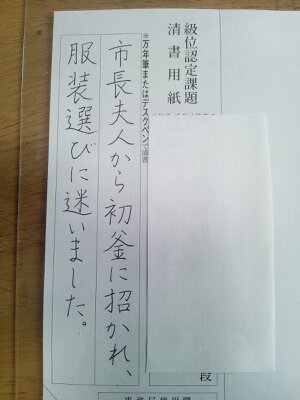 級位認定課題
清書用紙
※万年筆またはデスクペンで清書
市長夫人から初釜に招かれ、
服装選びに迷いました。
段